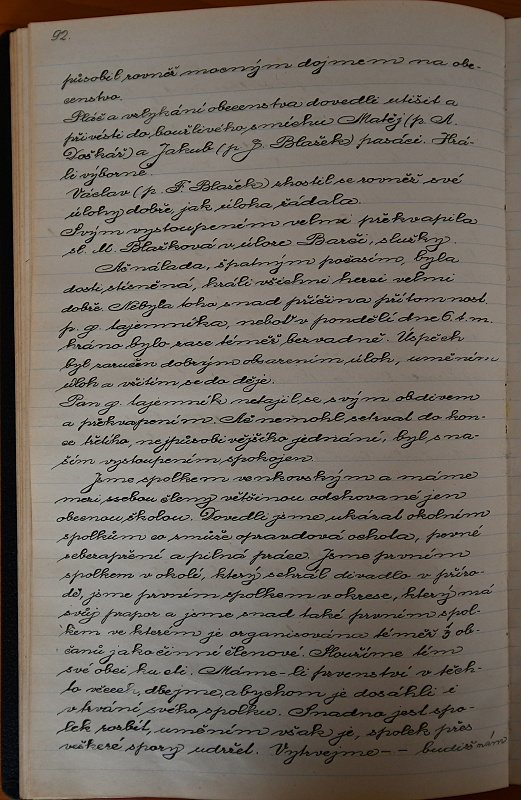 92.
působil rovněž mocným dojmem na obe-
censtvo.
Pláč a vzlykání obecenstva dovedli utišit a
přivésti do bouřlivého smíchu Matěj (p. A.
Doškář) a Jakub (p. J. Blažek) pasáci. Hrá-
li výborně.
Václav (p. F. Blažek) zhostil se rovněž své
úlohy dobře, jak úloha žádala.
Svým vystoupením velmi překvapila
sl. M. Blažková v úloze Barči, služky.
Ač nálada, špatným počasím, byla
dosti stísněná, hráli všichni herci velmi
dobře. Nebyla toho snad příčina přítomnost
p. g. tajemníka, neboť v pondělí dne 6. t. m.
hráno bylo zase téměř bezvadně. Úspěch
byl zaručen dobrým obsazením úloh, uměním
úloh a vžitím se do děje.
Pan g. tajemník netajil se svým obdivem
a překvapením. Ač nemohl setrvat do kon-
ce třetího, nejpůsobivějšího jednání, byl s na-
ším vystoupením spokojen.
Jsme spolkem venkovským a máme
mezi ssebou členy většinou odchované jen
obecnou školou. Dovedli jsme ukázat okolním
spolkům co zmůže opravdová ochota, pevné
sebezapření a pilná práce. Jsme prvním
spolkem v okolí, který sehrál divadlo v příro-
dě, jsme prvním spolkem v okrese, který má
svůj prapor a jsme snad také prvním spol-
kem ve kterém je organisována téměř 1/3 ob-
čanů jako činní členové. Sloužíme tím
své obci ku cti. Máme-li prvenství v těch-
to věcech, dbejme, abychom je dosáhli i
v trvání svého spolku. Snadno jest spo-
lek rozbít, uměním však je, spolek přes
veškeré spory udržet. Vytrvejme -- budiž nám